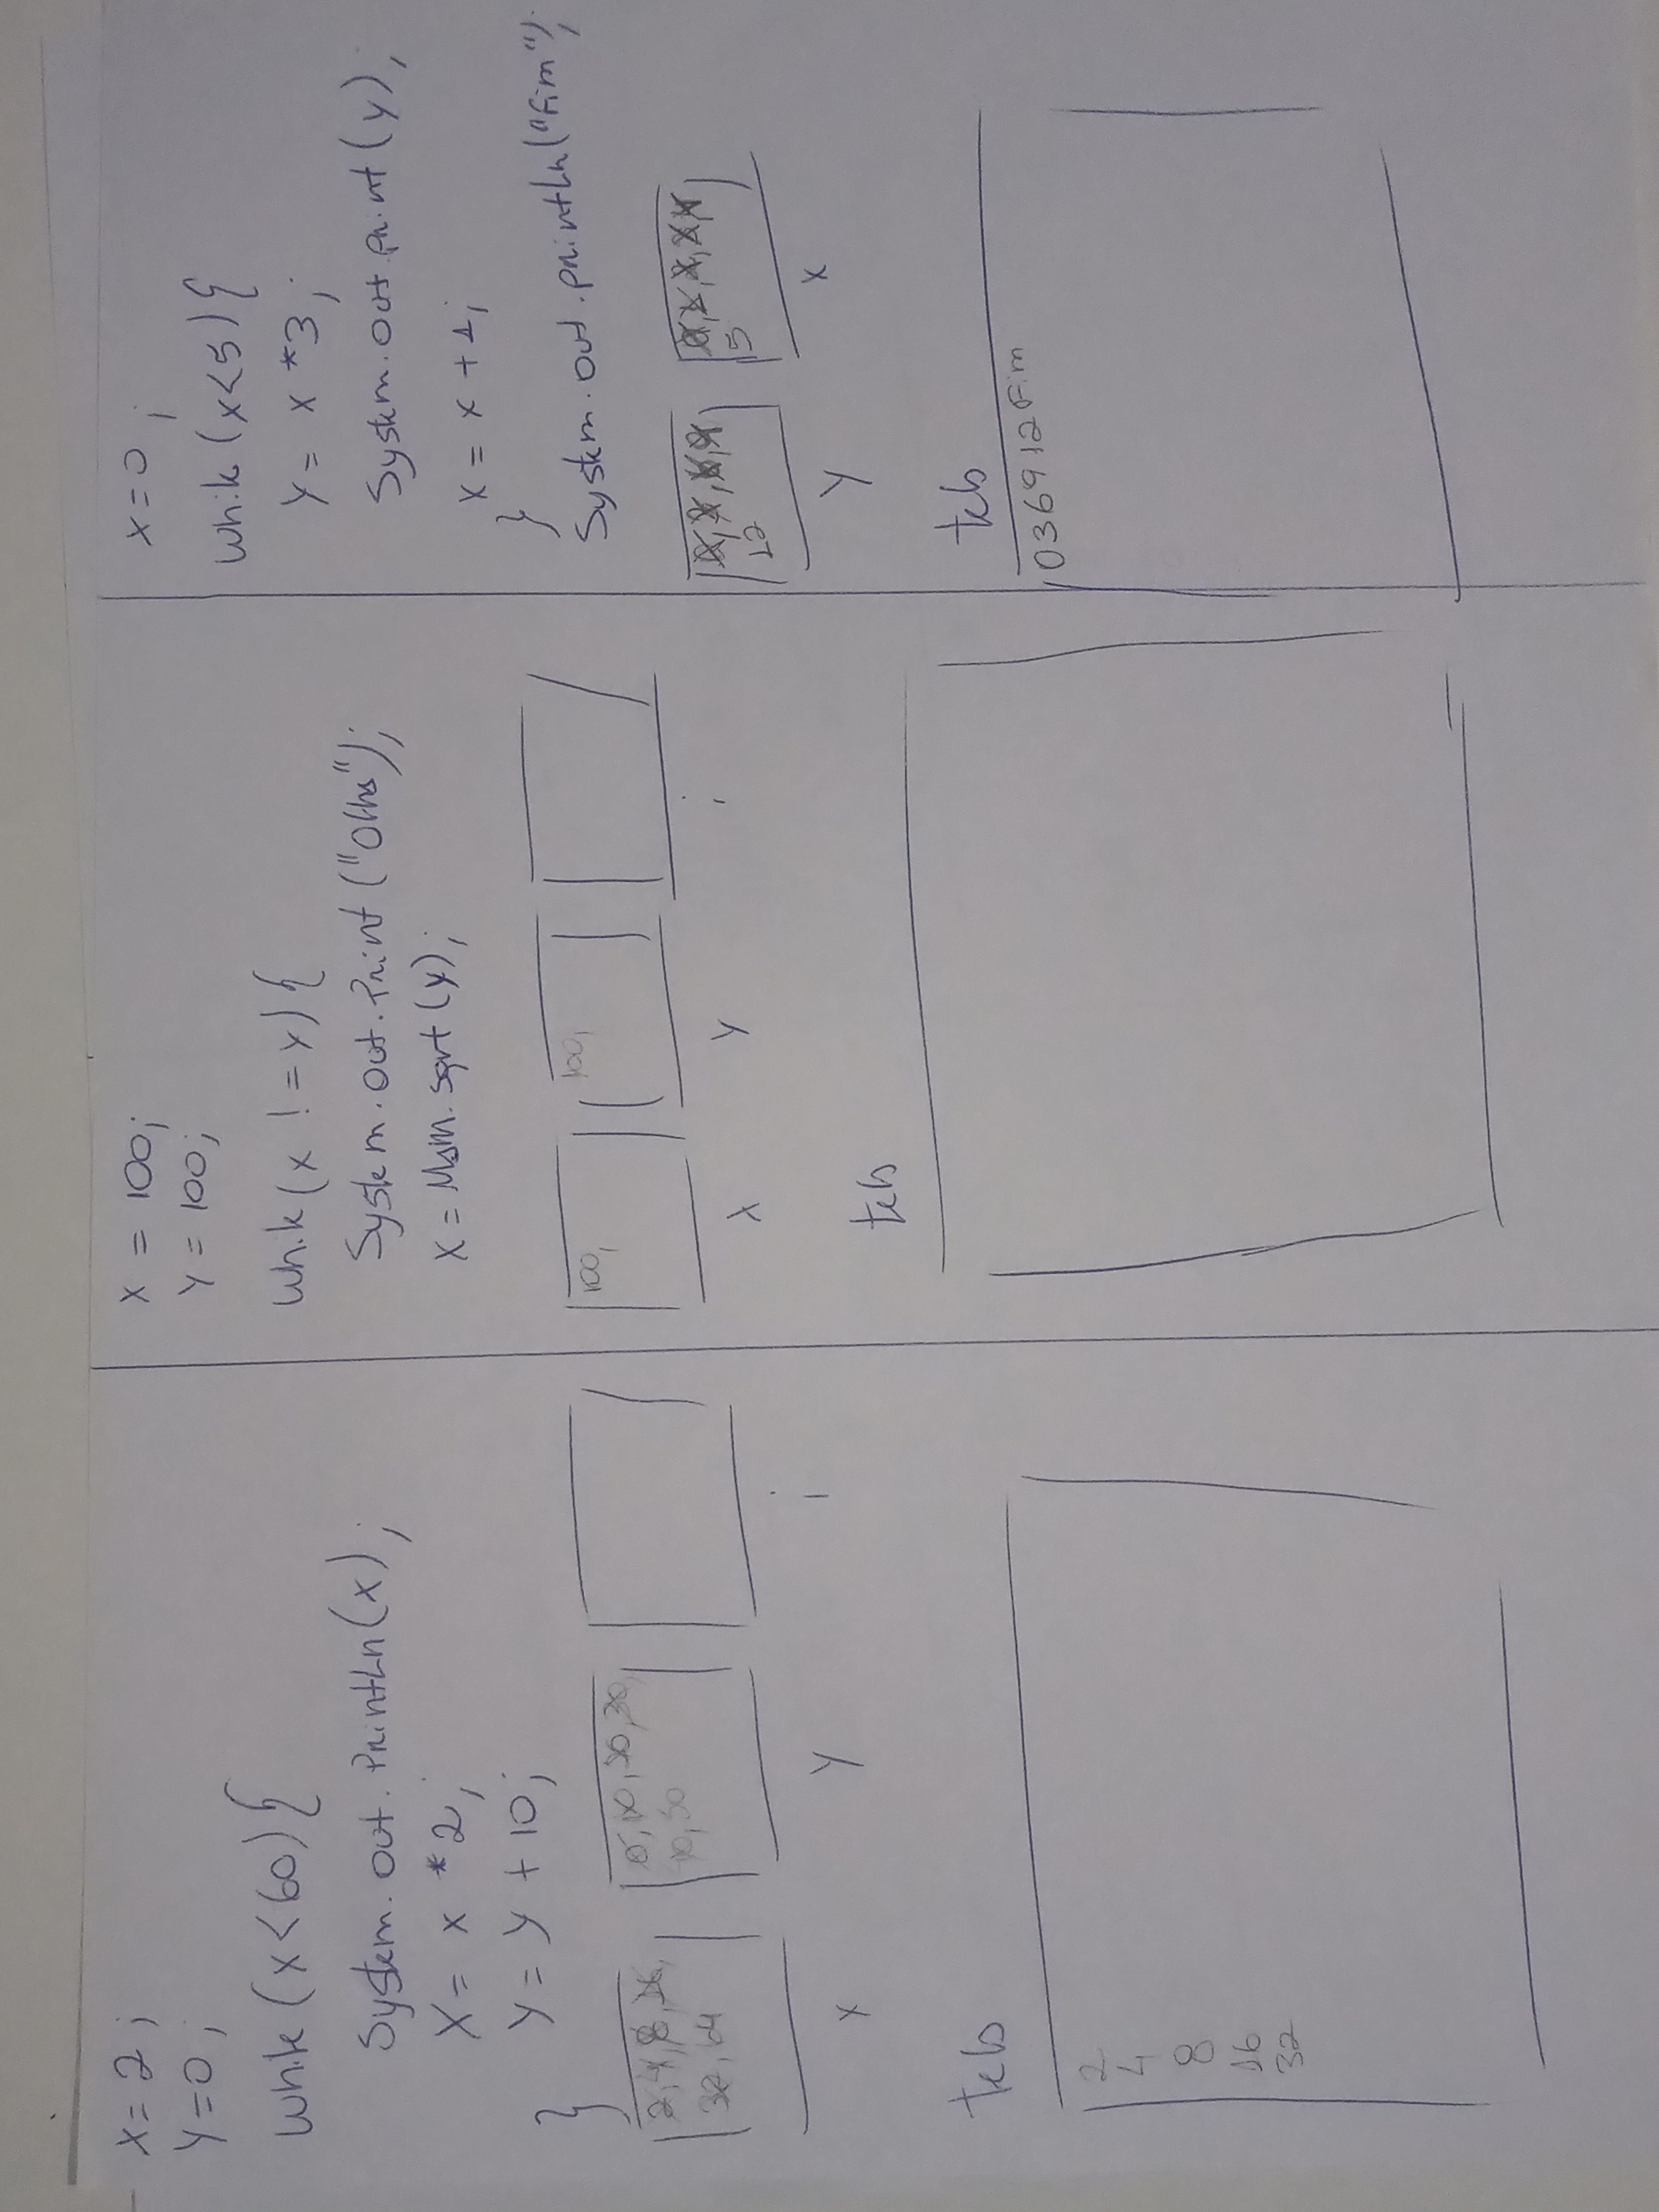 X = 2 ;
Y = 0 ;
while (x < 60) {
System.out.println(x) ;
X = x * 2 ;
Y = y + 10 ;
}
2, 4, 8, 16,
32, 64
0, 10, 20, 30,
40, 50
x
y
i
tela
2
4
8
16
32
X = 100 ;
Y = 100 ;
while (x != y) {
System.out.print ("Olha") ;
X = . sqrt (y) ;
100,
100,
x
y
i
tela
x = 0 ;
while (x < 5) {
Y = x * 3 ;
System.out.print (y) ;
x = x + 1 ;
}
System.out.println ("Fim") ;
0, 3, 6, 9
12
0, 1, 2, 3, 4
5
y
x
tela
036912Fim